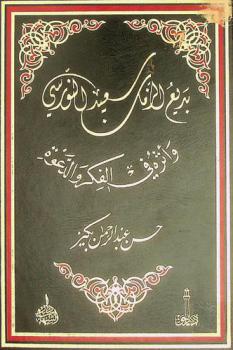 بديع الزمان سعيد النورسي
وأثره في الفكر والدعوة
حسن عبد الرحمن بكير